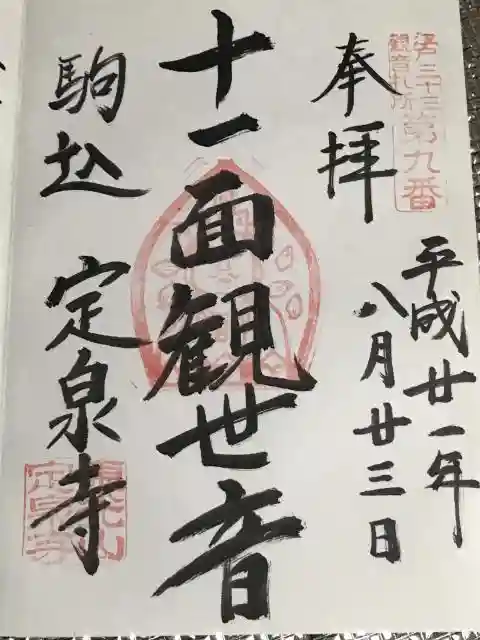 江戸三十三
観音札所
第九番
奉拝
平成廿一年
八月廿三日
十一面観世音
駒込 定泉寺
定泉寺